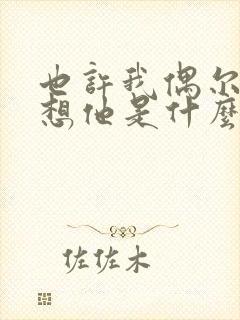 也許我偶尔
想他是什麽
佐佐木